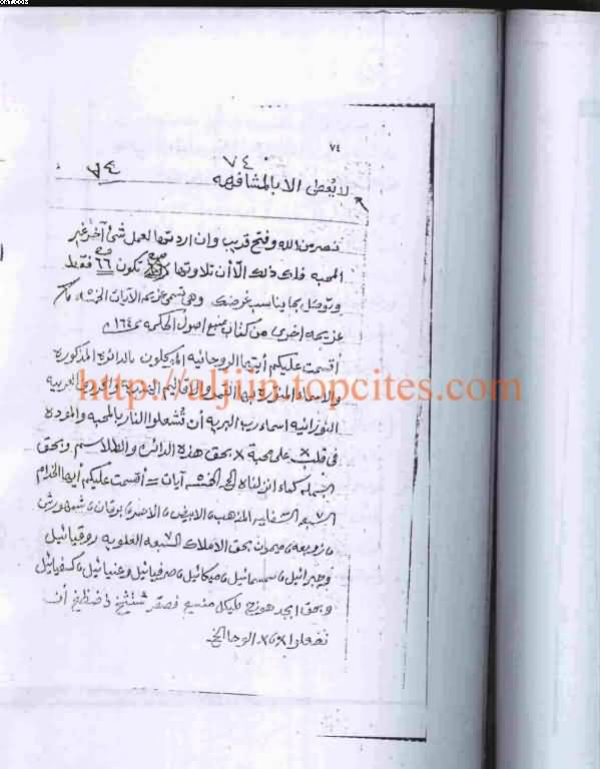 ٧٤
٧٤
٧٤
لا يُعطى الا بالمشافهه
نصر من الله وفتح قريب وان اردتها لعمل شئ آخر غير
المحبه فلك ذلك الّا أن تلاوتها تكون ٦٦ فقط
وتوكل بما يناسب غرضك وهى تسمى عزيمة الآيات الخمسه
عزيمه اخرى من كتاب منبع اصول الحكمه ص ١٦٤
أقسمت عليكم أيتها الروحانيه الموكلون بالدائره المذكورة
والاسماء
http://aljjin.topcites.com
النورانيه اسماء رب البريه أن تُشعلوا النار بالمحبه والموده
فى قلب × على محبة × بحق هذه الدائره والطلاسم وبحق
كماء انزلناه الخ الخمسه آيات = أقسمت عليكم أيها الخدام
السبعه السفليه المذهب، الابيض، الاحمر، برقان، شمهورش
، زوبعه، ميمون بحق الاملاك السبعه العلويه روقيائيل
وجبرائيل، سمسمائيل، ميكائيل، صرفيائيل، وعنيائيل، كسفيائيل
وبحق ابجد هوزح طيكل منسع فصقر شتثخ ذضظغ أن
تفعلوا الوحا الخ